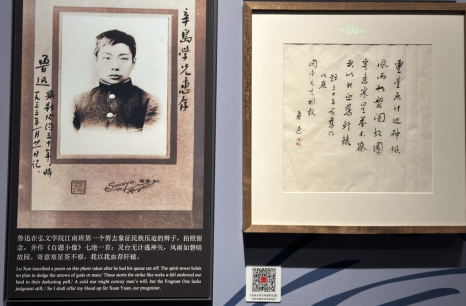 辛島学兄惠存
魯迅
鲁迅在弘文学院江南班第一个剪去象征民族压迫的辫子，拍照留
念，并作《自题小像》七绝一首：灵台无计逃神矢，风雨如磐暗
故园。寄意寒星荃不察，我以我血荐轩辕。
Lu Xun inscribed a poem on this photo taken after he had his queue cut off: The spirit tower holds
no plan to dodge the arrows of gods or men;/ These storm the strike like rocks a fall
land in their darkening pall./ A cold star might convey men's will, but the Fragrant One lacks
judgment still:/ So I shall offer my blood for Yuan, our progenitor.
靈臺無計逃神矢
風雨如磐闇故園
寄意寒星荃不察
我以我血薦軒轅
錄三十年前舊作
以應
岡本先生雅教
魯迅